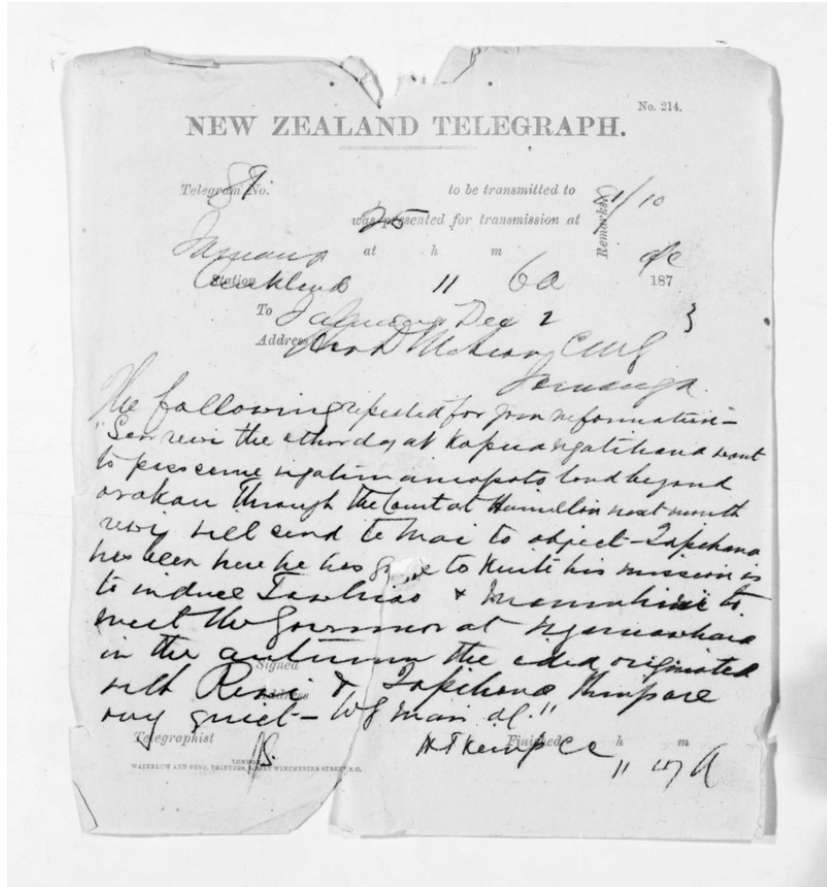 No. 214.
NEW ZEALAND TELEGRAPH.
Telegram No. 89 to be transmitted to 81/10
was presented for transmission at 25 Remarks.
at h m
Station Auckland 11 187
To Dec 2
Address Hon D McLean CMG
Tauranga
The following repeated for your information—
"Saw rewi the other day at Kopua ngatihaua want
to pass some land beyond
orakau through the Court at Hamilton next month
rewi will send te to object— Tapihana
has been here he has gone to Kuiti his mission is
to induce Tawhiao & Manuhiri to
meet the Governor at
in the autumn the edea originated
Signed
with Rewi & Tapihana
Address
very quiet— WG Mair
Telegraphist Finished h m
HT Kemp CC 11 A
LONDON
WATERLOW AND SONS, PRINTERS, GREAT WINCHESTER STREET, E.C.